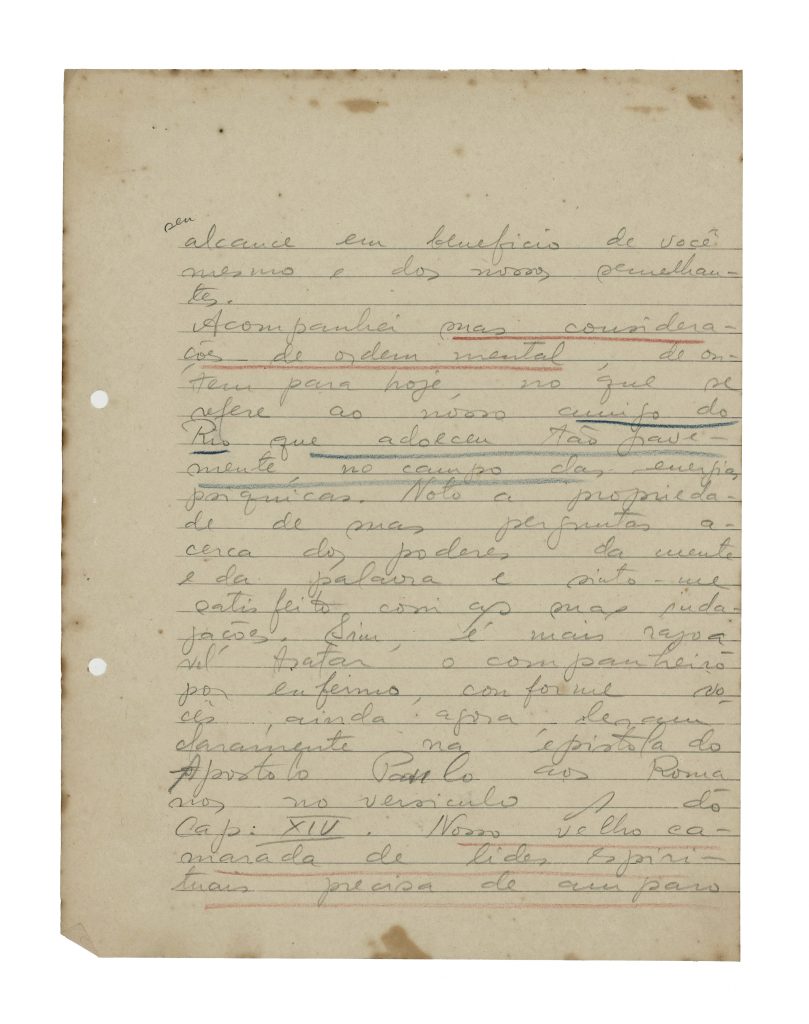 seu
alcance em beneficio de você
mesmo e dos nossos semelhan-
tes.
Acompanhei suas considera-
ções de ordem mental, de on-
tem para hoje, no que se
refere ao nosso amigo do
Rio que adoeceu tão grave-
mente, no campo das energias
psiquicas. Noto a proprieda-
de de suas perguntas a-
cerca dos poderes da mente
e da palavra e sinto-me
satisfeito com as suas inda-
gações. Sim, é mais razoa
vel tratar o companheiro
por enfermo, conforme vo-
cês, ainda agora leram
claramente na epistola do
Apostolo Paulo aos Roma
nos no versiculo 1 do
Cap: XIV. Nosso velho ca-
marada de lides espiri-
tuais precisa de amparo